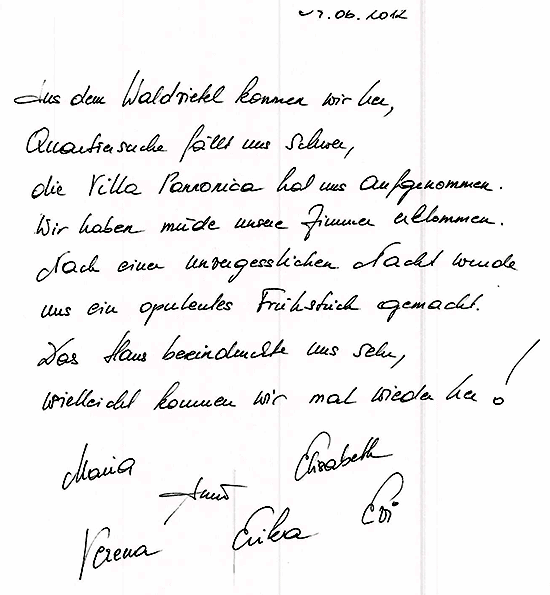 .06.2012
Aus dem Waldviertel kommen wir her,
Quartiersuche fällt uns schwer,
die Villa Pannonica hat uns aufgenommen.
Wir haben müde unsere Zimmer erklommen.
Nach einer unvergesslichen Nacht wurde
uns ein opulentes Frühstück gemacht.
Das Haus beeindruckte uns sehr,
vielleicht kommen wir mal wieder her!
Maria
Elisabeth
Evi
Verena
Erika